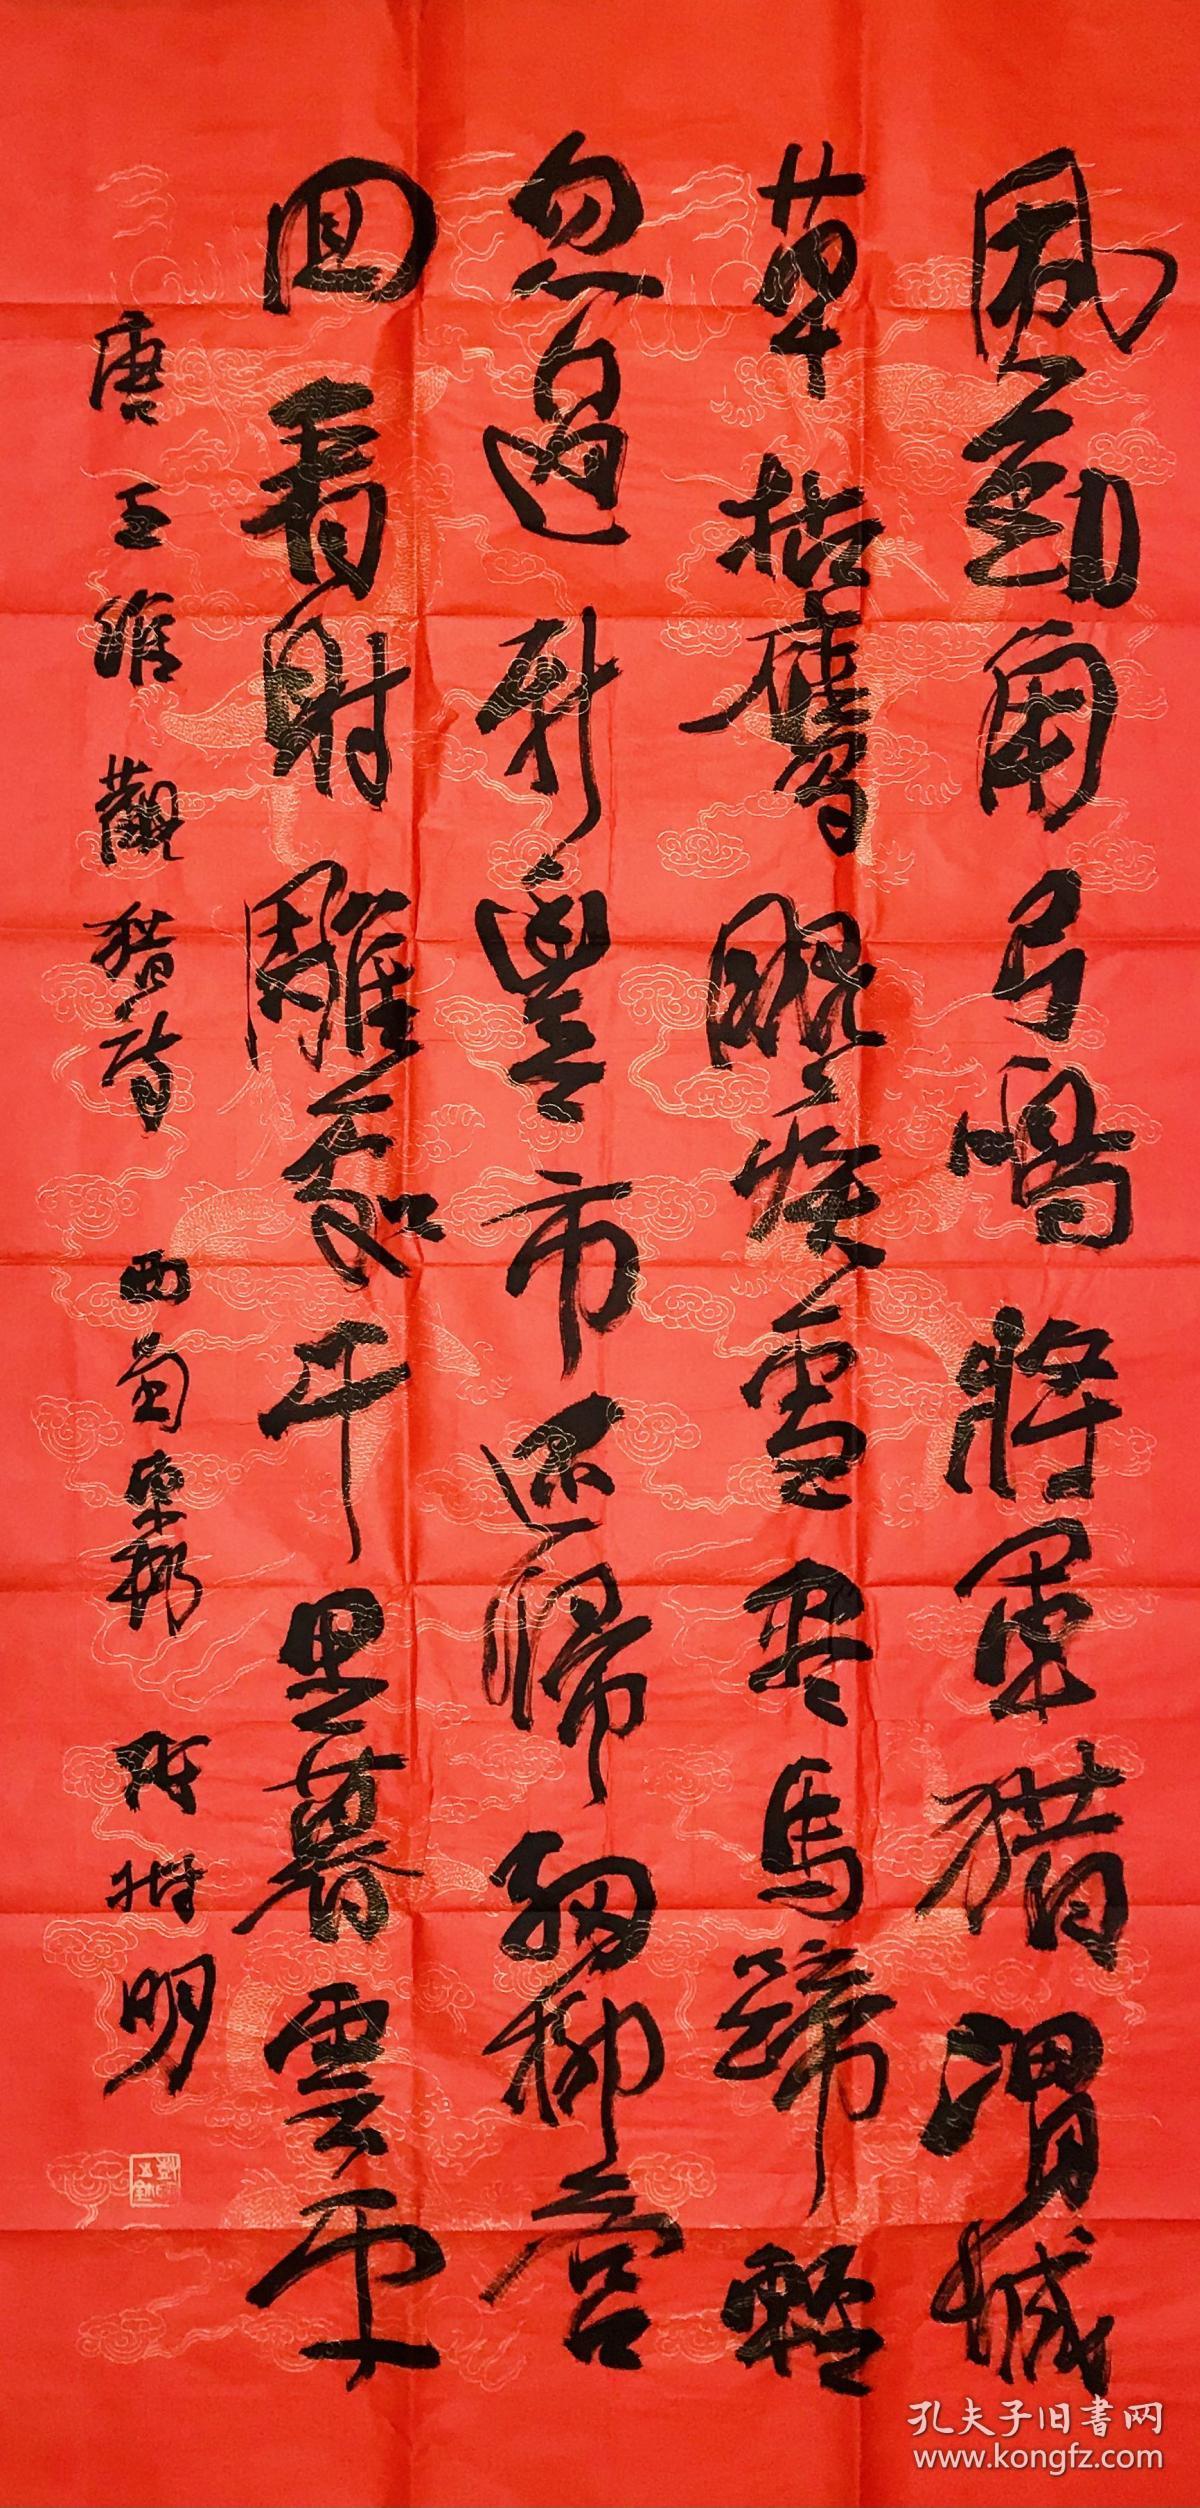 風勁角弓鳴將軍猎渭城
草枯鷹眼疾雪尽馬蹄輕
忽過新豐市还歸細柳營
回看射雕處千里暮雲平
唐王維觀猎詩 西蜀東 树明
孔夫子旧書网
www.kongfz.com